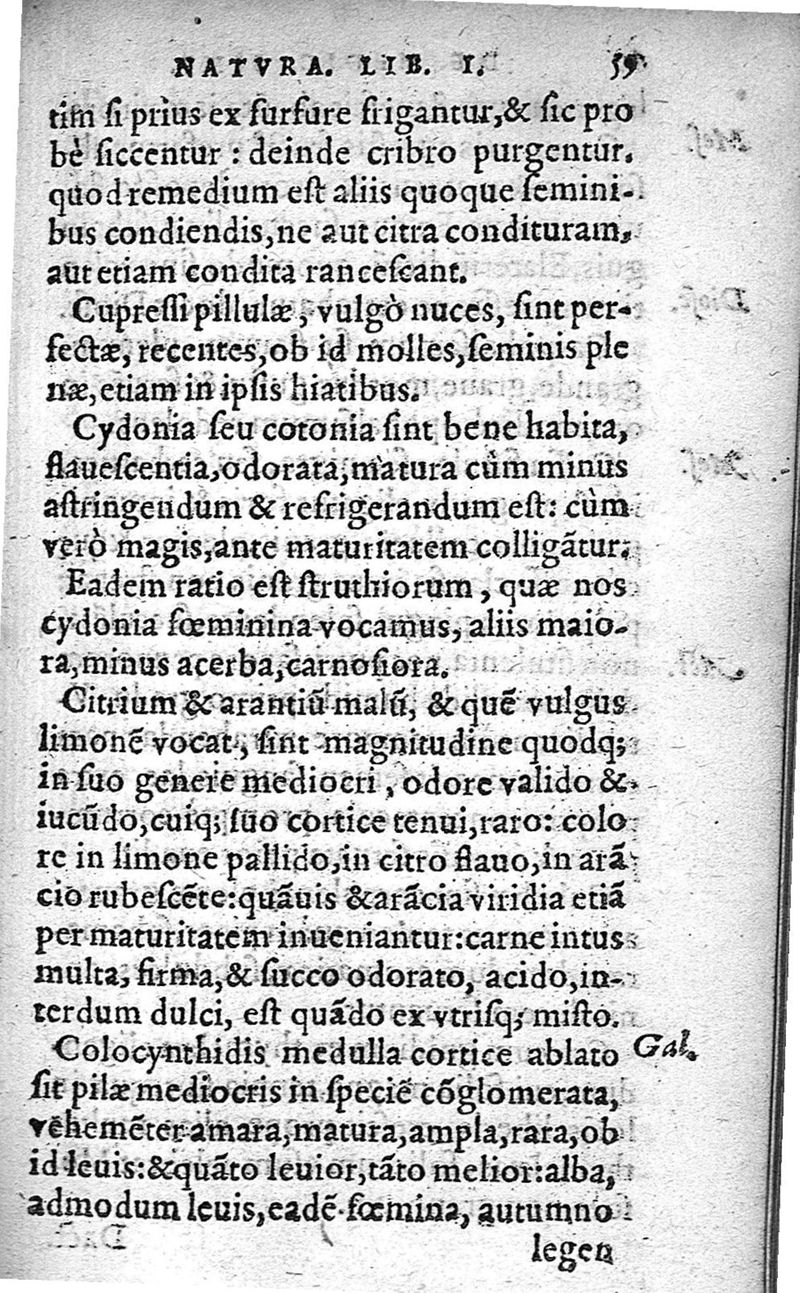 NATVRA. LIB. I. 59
tim si prius ex furfure frigantur,& sic pro
bè siccentur : deinde cribro purgentur.
quod remedium est aliis quoque semini-
bus condiendis, ne aut citra condituram,
aut etiam condita rancescant.
Cupressi pillulæ, vulgò nuces, sint per-
fectæ, recentes, ob id molles, seminis ple
næ, etiam in ipsis hiatibus.
Cydonia seu cotonia sint bene habita,
flauescentia, odorata, matura cùm minus
astringendum & refrigerandum est: cùm
verò magis, ante maturitatem colligãtur.
Eadem ratio est struthiorum, quæ nos
cydonia fœminina vocamus, aliis maio-
ra, minus acerba, carnosiora.
Citrium & arantiũ malũ, & quẽ vulgus
limonẽ vocat, sint magnitudine quodq;
in suo genere mediocri, odore valido &
iucũdo, cuiq; suo cortice tenui, raro: colo
re in limone pallido, in citro flauo, in arã
cio rubescẽte: quãuis & arãcia viridia etiã
per maturitatem inueniantur: carne intus
multa, firma, & succo odorato, acido, in-
terdum dulci, est quãdo ex vtrisq; misto.
Colocynthidis medulla cortice ablato Gal.
sit pilæ mediocris in speciẽ cõglomerata,
vehemẽter amara, matura, ampla, rara, ob
id leuis: & quãto leuior, tãto melior: alba,
admodum leuis, eadẽ fœmina, autumno
legen